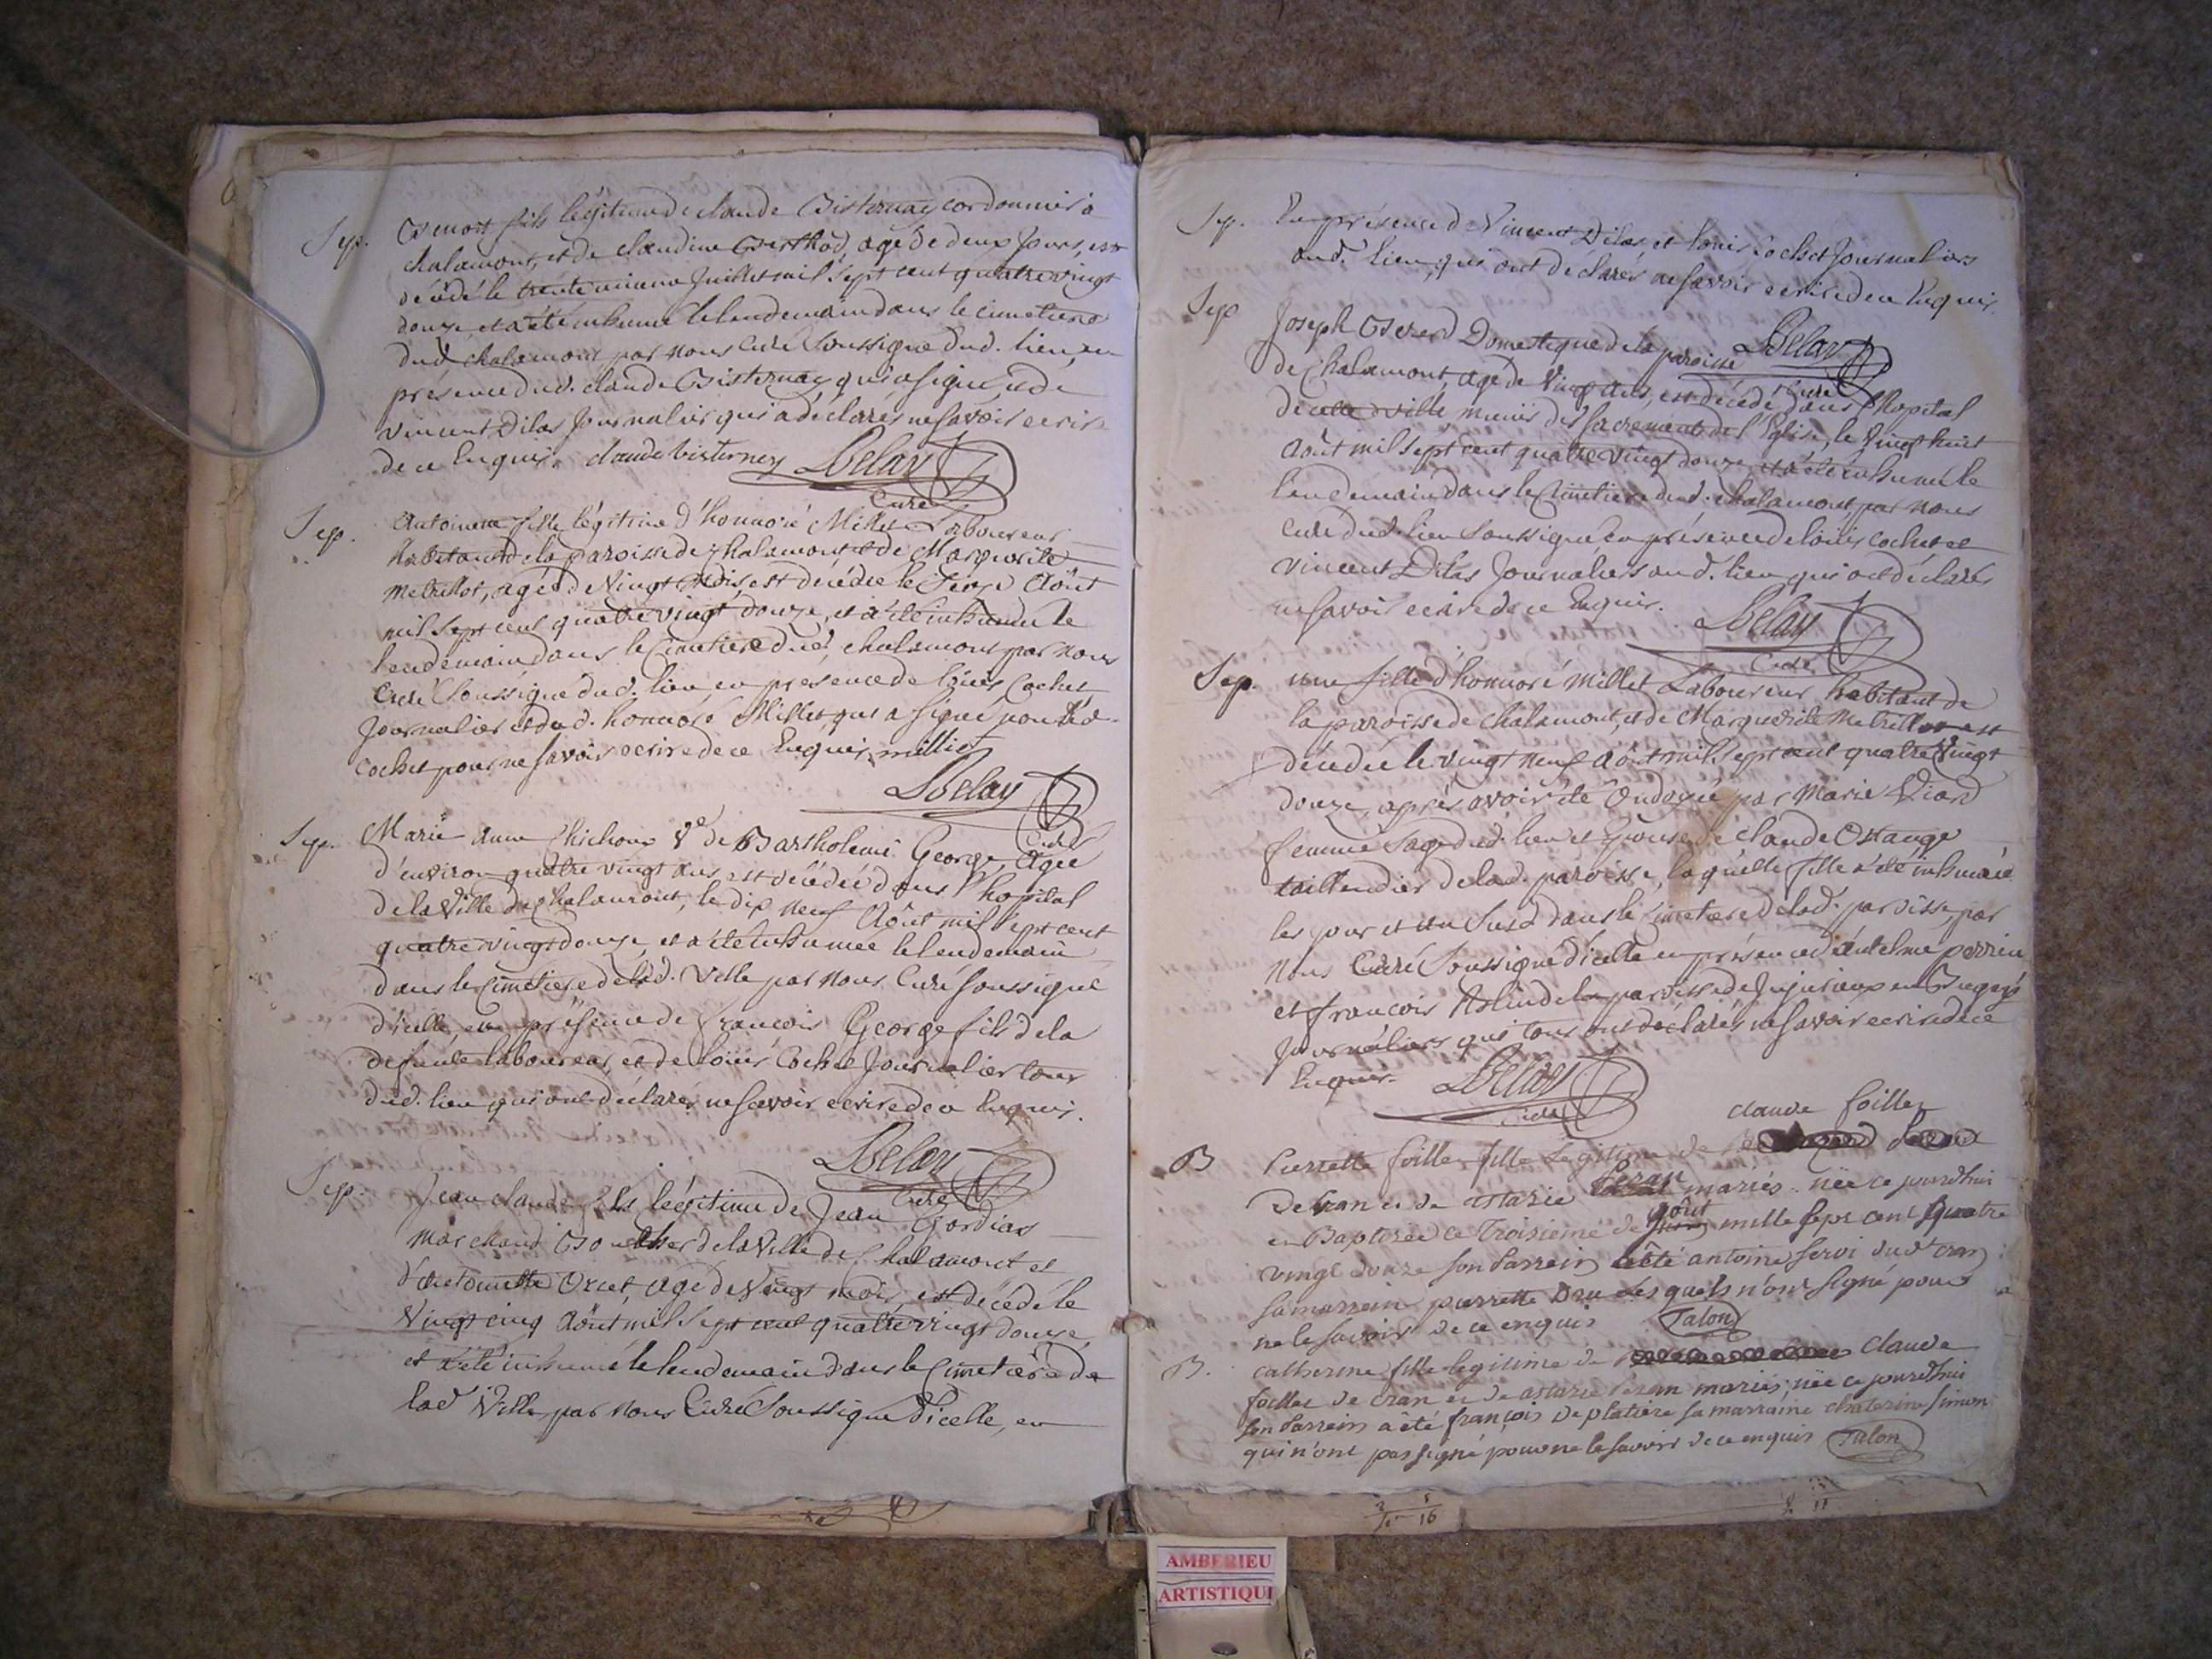 Sep. Benoit fils légitime de claude Bisternay cordonnier à
chalamont, et de claudine Berthod, agé de deux Jours, est
décédé le trente Juillet mil sept cent quatre vingt
douze et a été inhumé le lendemain dans le cimetiere
dud. chalamont par nous Curé Soussigné dud. lieu, en
présence dud. claude Bisternay qui a signé, et de
vincent Dilas Journalier qui a déclarés ne savoir ecrire
de ce Enquis. claude bisterney Belay
Curé
Sep. Antoinette fille légitime d'honnoré Millet Laboureur
habitant de la paroisse de chalamont et de Marguerite
Metrillot, agée de Vingt Mois, est décédée le Août
mil sept cent quatre vingt douze, et a été inhumée le
lendemain dans le Cimetiere dud. chalamont par nous
Curé Soussigné dud. lieu, en presence de loüis Cochet
Journalier et dud. honnoré Millet qui a signé non led.
cochet pour ne savoir ecrire de ce Enquis, milliet
Belay
Curé
Sep. Marie Anne Chichoux Ve de Bartholemi George, Agée
d'environ quatre vingt ans est décédée dans l'hopital
de la Ville de chalamont, le dix neuf Août mil Sept cent
quatre vingt douze, et a été inhumée le lendemain
dans le Cimetiere de lad. Ville par nous Curé Soussigné
d'icelle, en présence de francois George fils de la
defunte laboureur, et de loüis Cochet Journalier tous
dud. lieu qui ont déclarés ne scavoir ecrire de ce Enquis.
Belay
Curé
Sep. Jean claude fils légitime de Jean Gordias
marchand Boucher de la Ville de Chalamont et
d'Antoinette Orcet, agé de Vingt mois, est décédé le
Vingt cinq Août mil Sept cent quatre vingt douze,
et a été inhumé le lendemain dans le Cimetiere de
lad Ville, par nous Curé Soussigné d'icelle, en
Sep. En présence de Vincent Dilas, et louis Cochet Journaliers
aud. lieu, qui ont déclarés ne savoir ecrire de ce Enquis.
Belay
Curé
Sep Joseph Domestique de la paroisse
de Chalamont, agé de Vingt ans, est décédé dans l'hopital
de cette ville munis des sacrements de l'Eglise, le Vingt huit
Août mil sept cent quatre vingt douze, et a été inhumé le
lendemain dans le Cimetiere dud. chalamont par nous
Curé dud. lieu Soussigné en présence de loüis cochet et
vincent Dilas Journaliers aud. lieu qui ont déclarés
ne savoir ecrire de ce Enquis. Belay
Curé
Sep. une fille d'honnoré millet Laboureur habitant de
la paroisse de chalamont, et de Marguerite Metrillot est
décédée le vingt neuf Août mil sept cent quatre Vingt
douze, après avoir été Ondoyée par Marie Viard
femme Sage dud. lieu et Epouse de claude Orange
taillandier de lad. paroisse, laquelle fille a été inhumée
les jour et an Susd. dans le Cimetiere de lad. paroisse, par
Nous Curé Soussigné d'icelle en présence d'antelme perrin
et francois de la paroisse de Jujurieux en Bugey
Journaliers qui tous ont déclarés ne savoir ecrire de ce
Enquis. Belay
Curé
claude foillet
B Pierrette foillet fille Legitime de
De cran et de mariés née ce jourdhui
Peran
et Baptisée ce Troisieme de mille sept cent quatre
août
vingt douze son Parrein a été antoine servi dud cran
sa marreine pierrette Dru Lesquels n'ont signé pour
ne le savoir de ce enquis Talon
B. Catherine fille legitime de Claude
foillet de cran et de Peran mariés, née ce jourdhui
son Parrein a été françois Deplatiere sa marraine chaterine simon
qui n'ont pas signé pour ne le savoir de ce enquis Talon
AMBERIEU
ARTISTIQUE